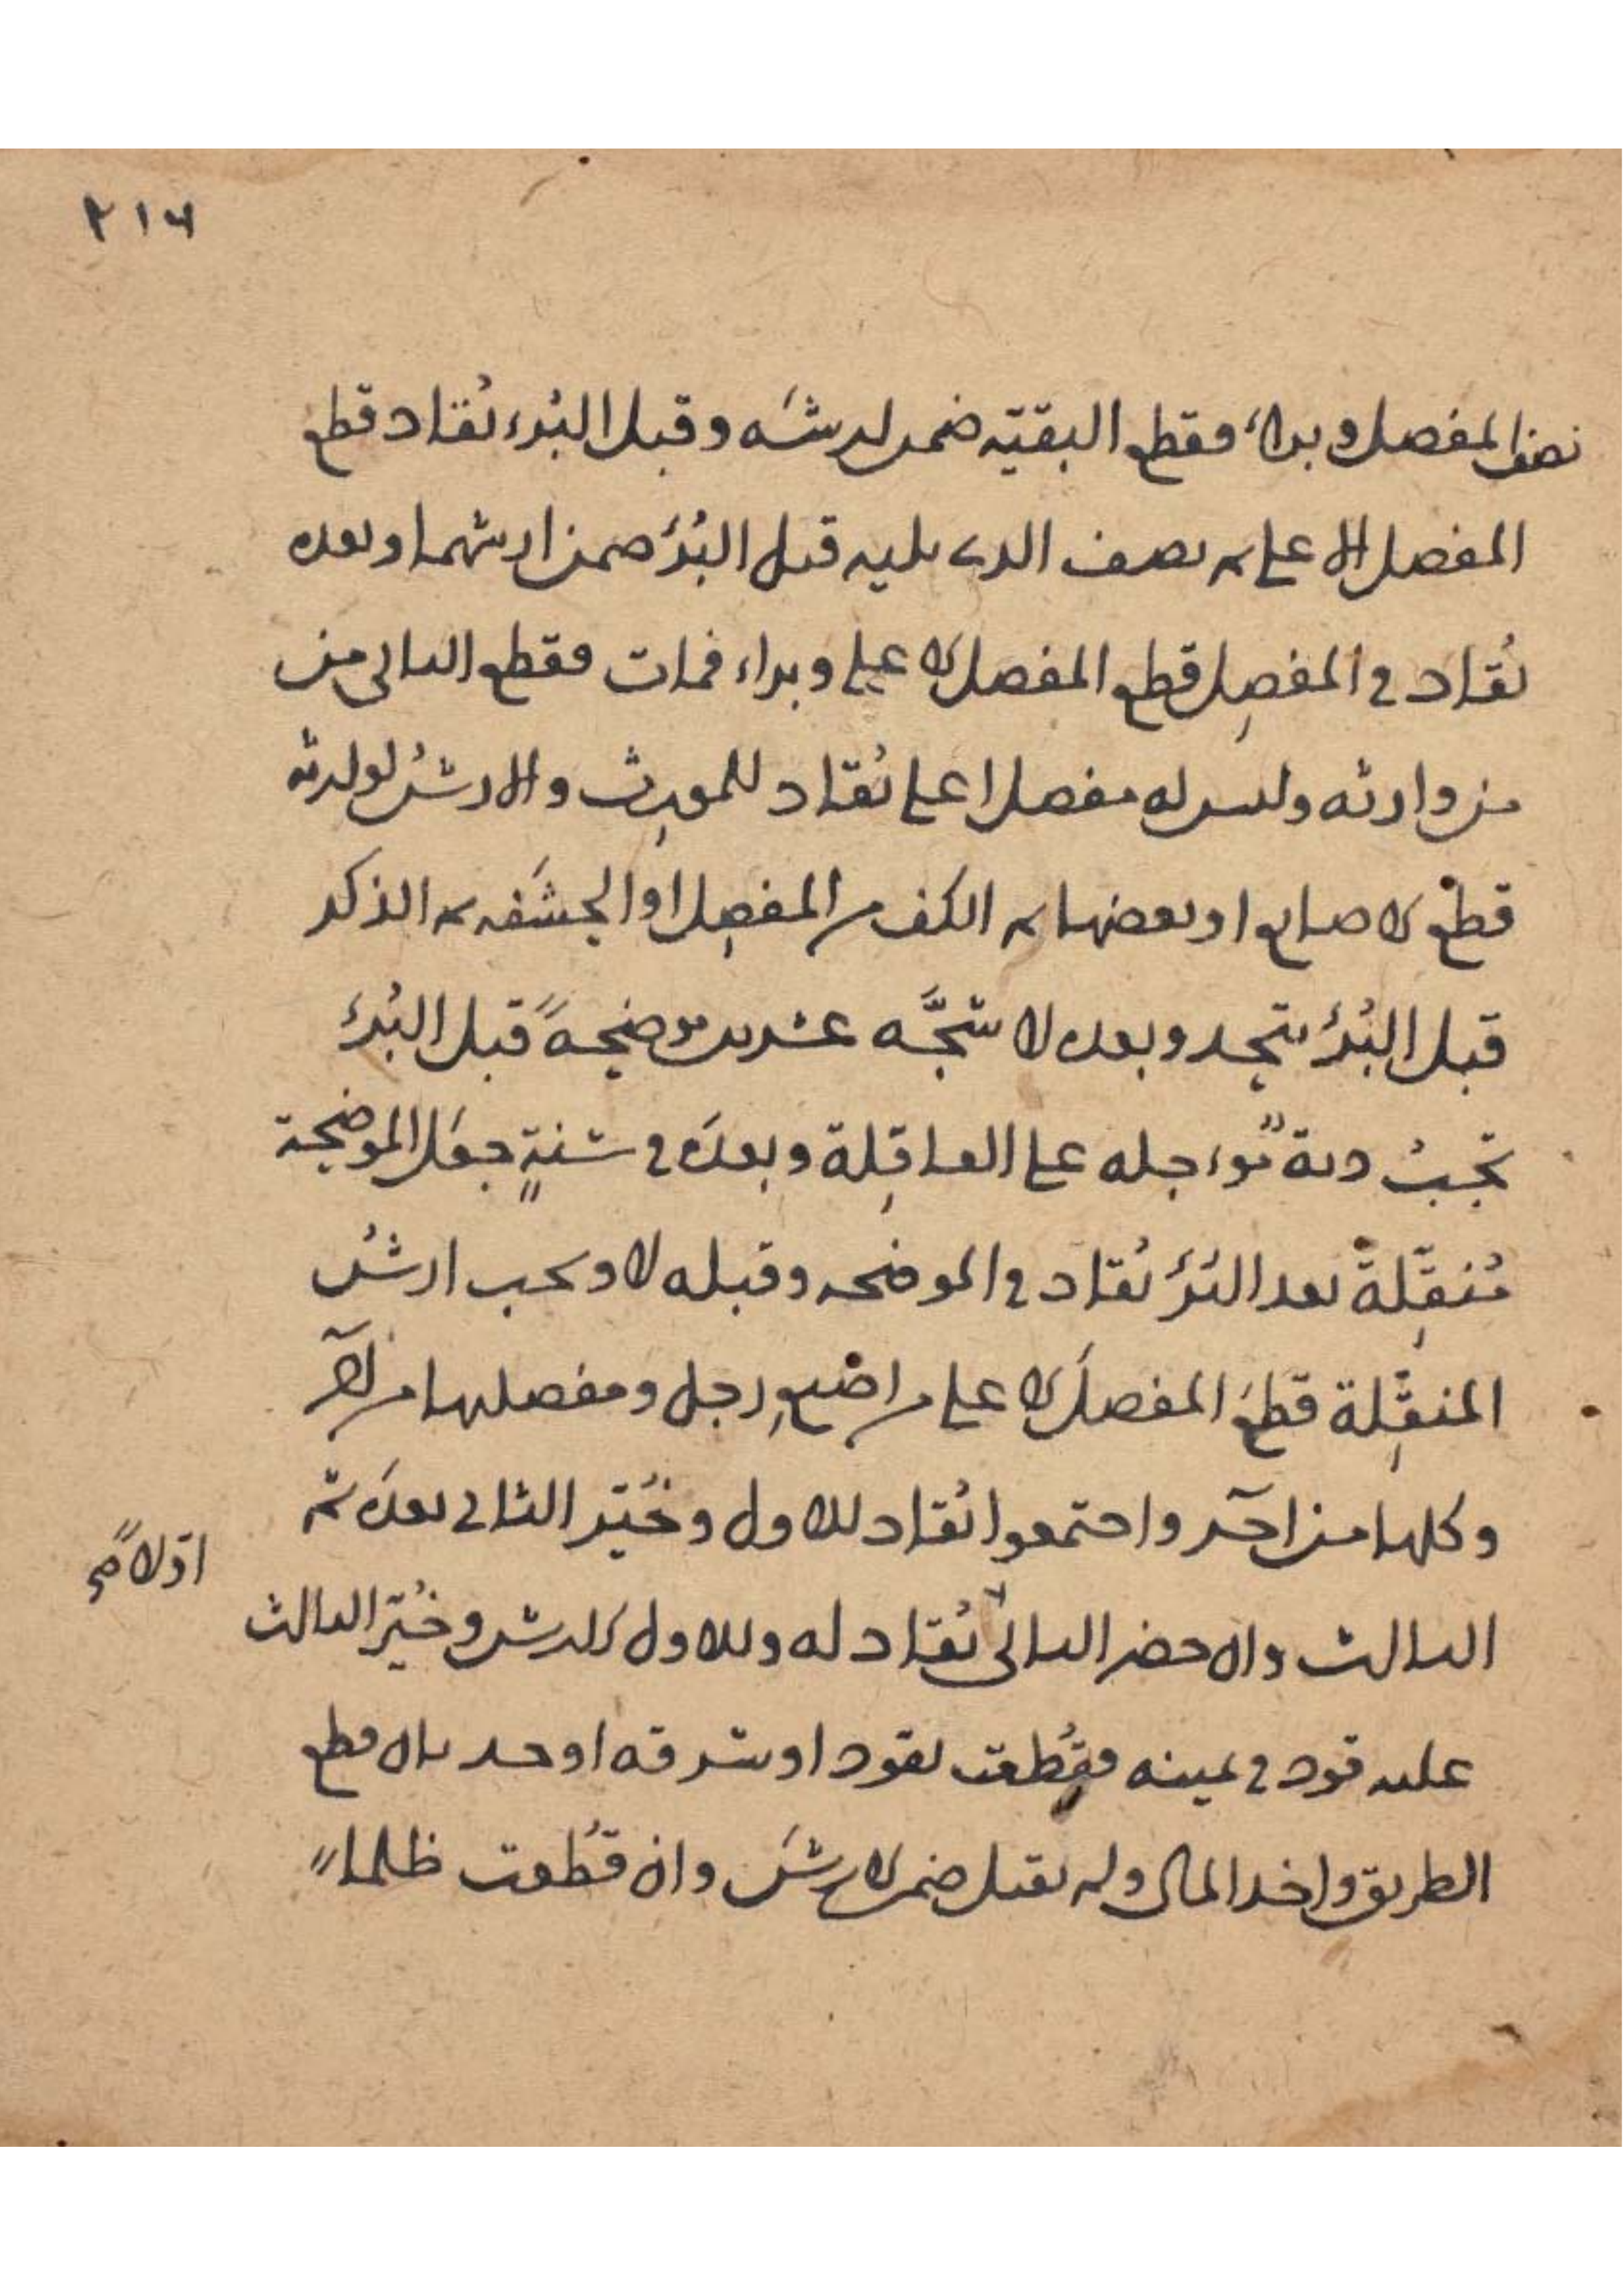 ٢١٦
نصف المفصل وبراء فقطع البقيّه ضمن ارشه وقبل البُرء يُقاد قطع
المفصل الاعلى ثم نصف الذي يليه قبل البُرء ضمن ارشهما وبعده
يُقاد في المفصِل قطع المفصل الاعلى وبراء فمات فقطع الثاني من
من وارثه وليس له مفصل اعلى يُقاد للمورث والارشُ لوارثه
قطع الاصابع او بعضها ثم الكف من المفصِل او الحشَفه ثم الذكر
قبل البُرء يتحد وبعده لا شجَّه عشرين موضحةً قبل البُرء
تجبُ دية مؤاجله على العاقِلة وبعدَه في سَنةٍ جعَل الموضحة
مُنقِّلةً بعد البُرء يُقاد في الموضحه وقبله لا ويجب ارشُ
المنقِّلة قطعَ المفصلَ الاعلى من اصبعِ رجل ومفصليها من آخر
وكلها من آخر واجتمعوا يُقاد للاول وخُيّر الثاني بعدَه ثم
الثالث وان حضر الثاني يُقاد له وللاول الارش وخُيّر الثالث
اوّلاً صح
عليه قود في يمينه فقُطعت بقود او سرقه او حد بان قطع
الطريق واخذ المال ولم يقتل ضمن الارشَ وان قُطعت ظلماً